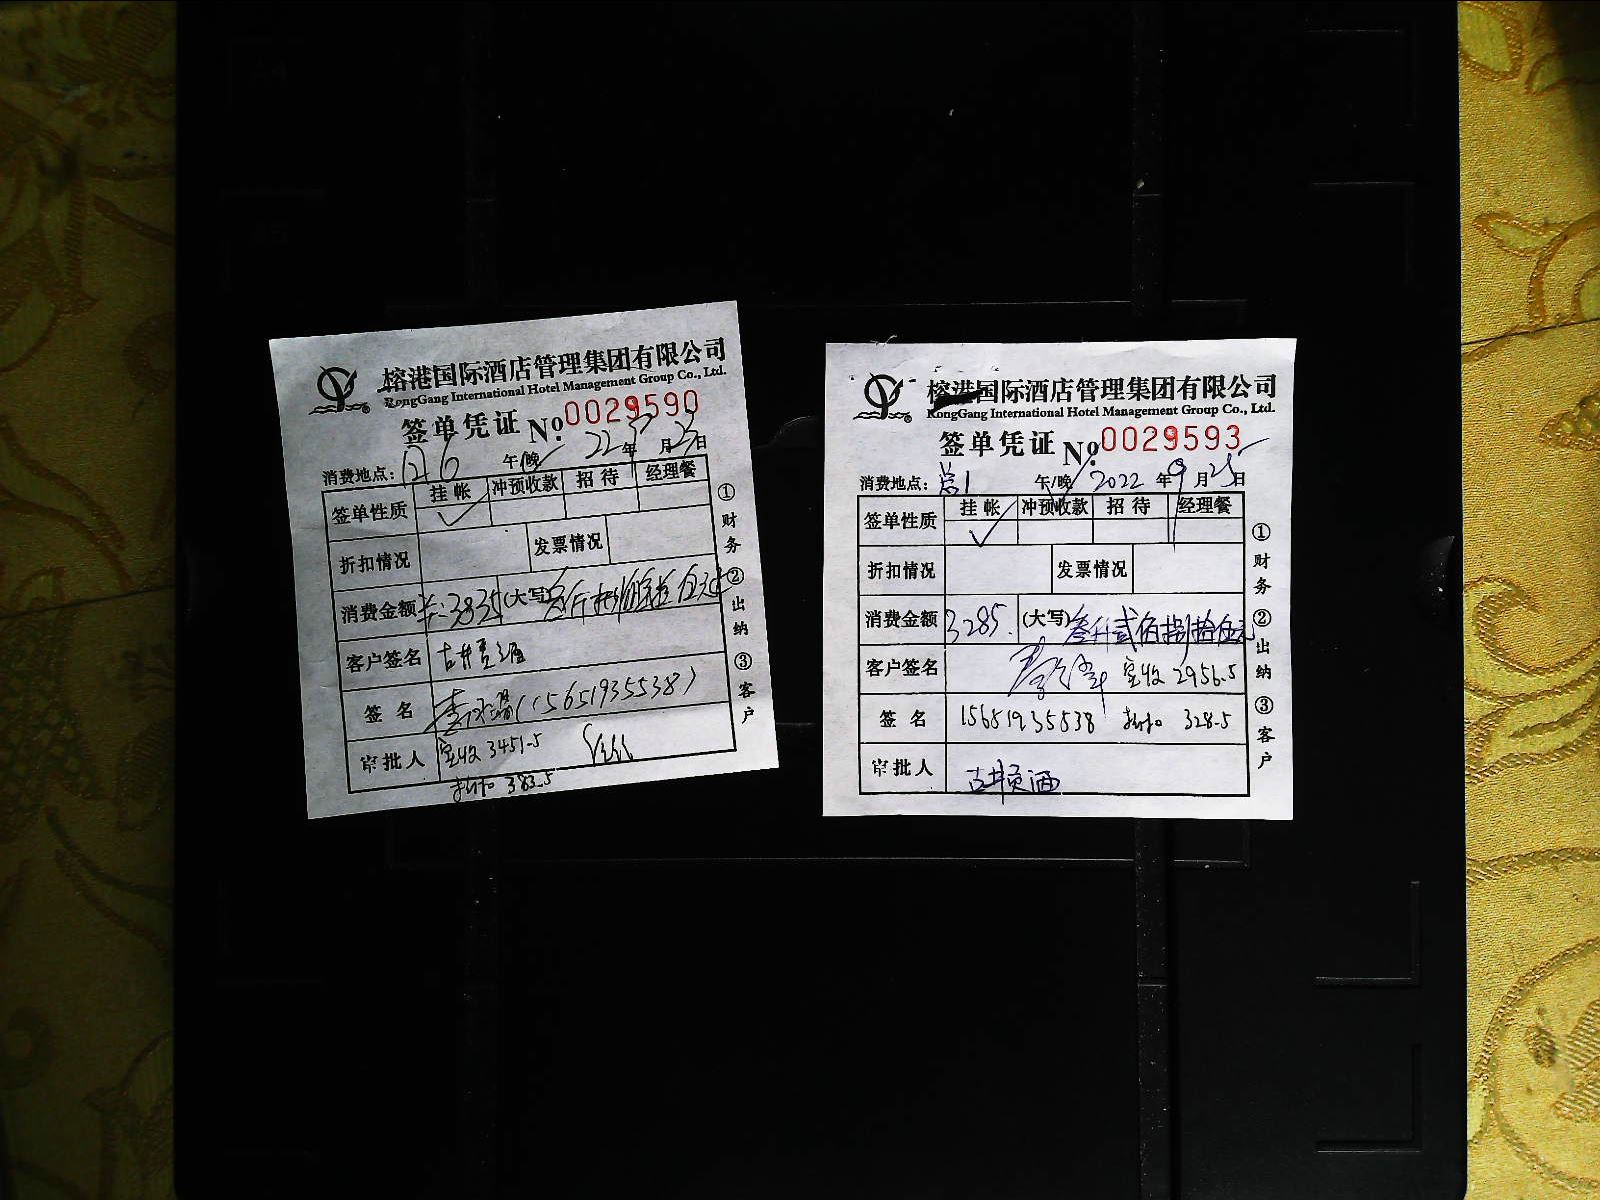 榕港国际酒店管理集团有限公司
RongGang International Hotel Management Group Co., Ltd.
签单凭证 No. 0029590
消费地点: 午/晚 22年 月 日
签单性质 挂帐 冲预收款 招待 经理餐
✓
折扣情况 发票情况
消费金额 3835 (大写) 叁仟捌佰叁拾伍元
客户签名 古井贡酒
签名 (15651935538)
审批人 实收 3451.5
折扣 383.5
①财务 ②出纳 ③客户
榕港国际酒店管理集团有限公司
RongGang International Hotel Management Group Co., Ltd.
签单凭证 No. 0029593
消费地点: 总1 午/晚 2022年9月25日
签单性质 挂帐 冲预收款 招待 经理餐
✓
折扣情况 发票情况
消费金额 3285. (大写) 叁仟贰佰捌拾伍元
客户签名 实收 2956.5
签名 15651935538 折扣 328.5
审批人 古井贡酒
①财务 ②出纳 ③客户